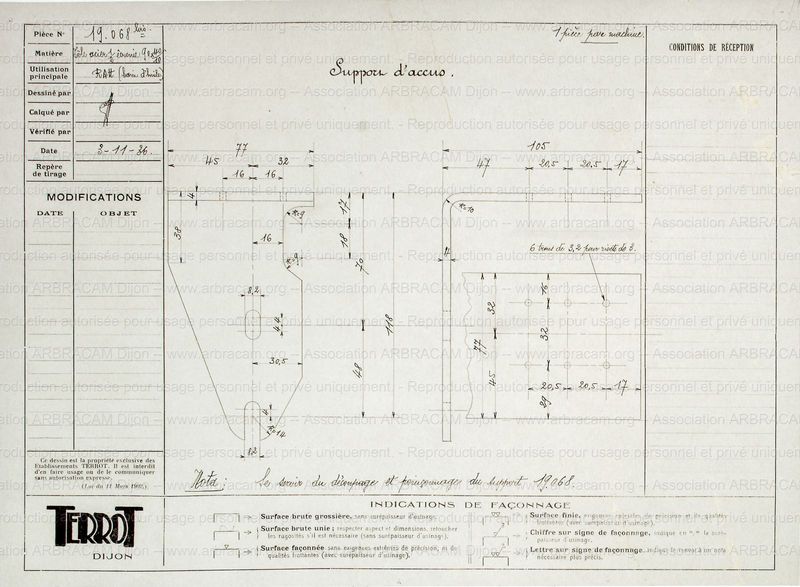 Pièce N° 19.068 bis
Matière
Utilisation principale
Dessiné par
Calqué par
Vérifié par
Date 3-11-36.
Repère de tirage
MODIFICATIONS
DATE OBJET
1 pièce par machine.
CONDITIONS DE RÉCEPTION
Support d'accus.
77
45 32
16 16
4
R=9
17
38
16
18
R=9
70
8,2
4 4
118
30,5
48
4
R=14
8,2
105
47 20,5 20,5 17
R=10
4
6 trous de 3,2 pour rivets de 3.
16
32
77
32
45
20,5 20,5 17
29
Nota: Se servir du découpage et poinçonnage du support 19068.
Ce dessin est la propriété exclusive des
Etablissements TERROT. Il est interdit
d'en faire usage ou de le communiquer
sans autorisation expresse.
(Loi du 11 Mars 1902).
TERROT
DIJON
INDICATIONS DE FAÇONNAGE
Surface brute grossière, sans surépaisseur d'usinage.
Surface brute unie; respecter aspect et dimensions, retoucher
les rugosités s'il est nécessaire (sans surépaisseur d'usinage).
Surface façonnée sans exigences extrêmes de précision, ni de
qualités frottantes (avec surépaisseur d'usinage).
Surface finie, exigences spéciales de précision et de qualités
frottantes (avec surépaisseur d'usinage).
Chiffre sur signe de façonnage, indique en
d'usinage.
Lettre sur signe de façonnage, indique le renvoi à un nota
nécessaire plus précis.
Association ARBRACAM Dijon – www.arbracam.org – Reproduction autorisée pour usage personnel et privé uniquement.